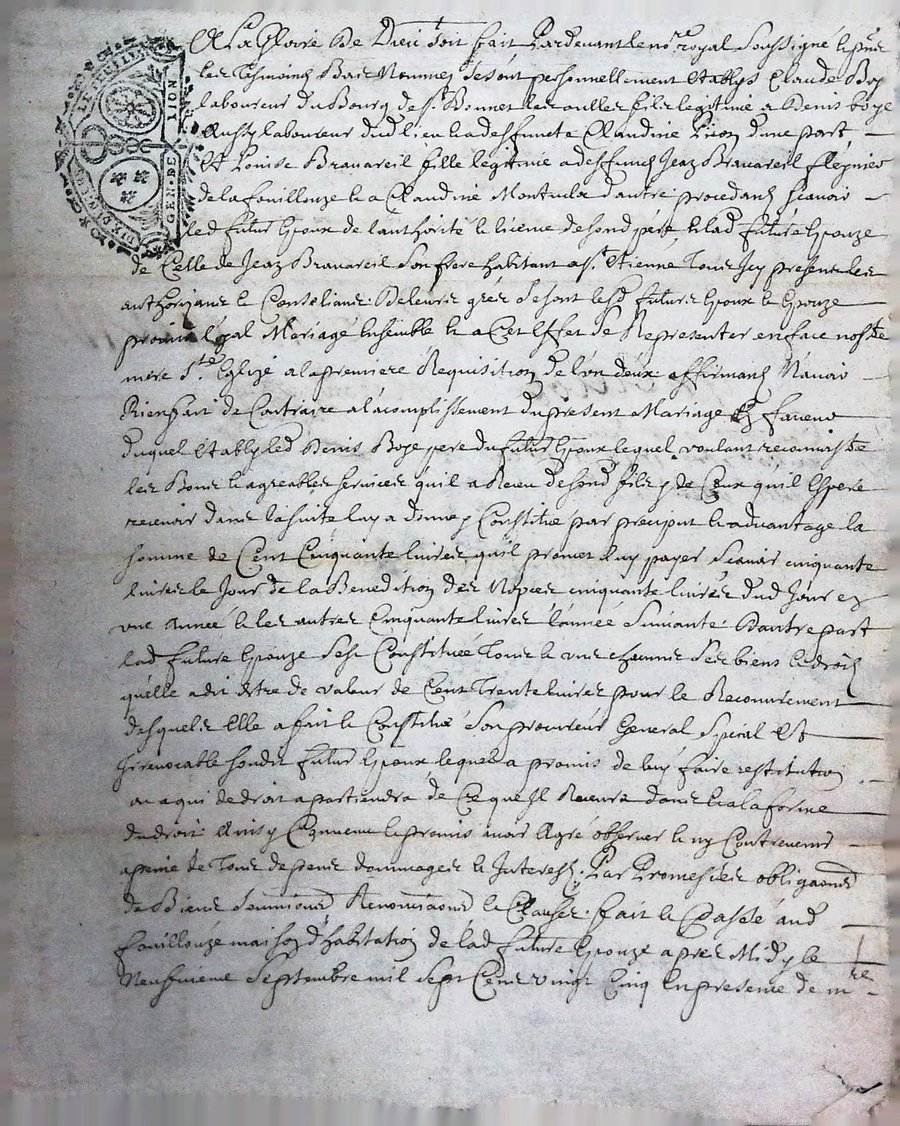 A La Gloire De Dieu soit fait Pardevant le no.re royal Soussigné & pnts
les tesmoins Bas Nommes se sont personnellement establys Claude Boy
laboureur du Bourg de st. Bonnet les oulles fils legitime a Denis boye
Aussy laboureur dud lieu & a deffuncte Claudine d'une part
Et Louise Bravareil fille legitime a deffunct Jean Bravareil
de la fouillouze & a Claudine d'autre procedant scavoir
led futur Espoux de l'authorité & licence de sond père & lad future Espouze
de Celle de Jean Bravareil Son frere habitant a st. Etienne tous icy presents les
authorizans & Conseillans De leurs gres se sont lesd futurs Espoux & Espouze
promis loyal Mariage Ensemble & a Cet Effet de se Representer en face nostre
mere Ste. Eglize a la premiere Requisition de l'un deux affirmant N'avoir
Rien fait de Contraire a l'acomplissement du present Mariage En faveur
duquel Etably led Denis Boye pere du futur Espoux lequel voulant reconnoistre
les Bons & agreables services qu'il a Receu de sond fils & de Ceux qu'il Espere
recevoir dans la suite luy a donné & Constitué par preciput & advantage la
somme de Cent Cinquante livres qu'il promet luy payer Scavoir cinquante
livres le Jour de la Benediction des Nopces cinquante livres dud Jour en
une Année & les autres Cinquante livres l'année Suivante D'autre part
lad future Espouze s'est Constituée Tous & uns chacuns Ses biens & droits
qu'elle a dit estre de valeur de Cent Trente livres pour le Recouvrement
desquels Elle a fait & Constitué Son procureur General Special Et
Irrevocable sondit futur Espoux lequel a promis de luy faire restitution
ou a qui de droit apartiendra de Ce que Il Recevra dans & a la forme
du droit Ainsy Convenu & promis avoir Agré observer & ny Contrevenir
a peine de tous despens dommages & Interests. Par Promesses obligaons
de Biens Soumissions Renonciaons & Clauses. fait & Passé aud
fouillouze maison d'habitation de lad future Espouze apres Midy le
Neufvieme Septembre mil Sept Cens vingt Cinq En presence de mre
GEN · DE LION